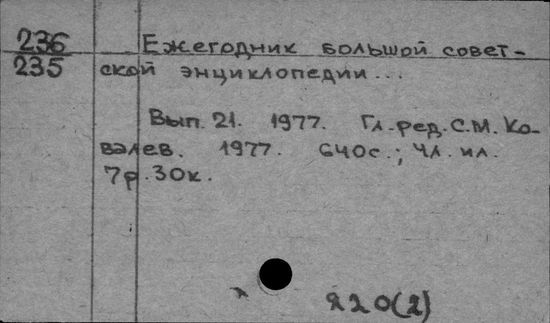 236 Ежегодник большой совет-
235 ской энциклопедии...
Вып. 21. 1977. Гл. ред. С.М. Ко-
валев. 1977. 640с.; 4л. ил.
7р. 30к.
220(2)